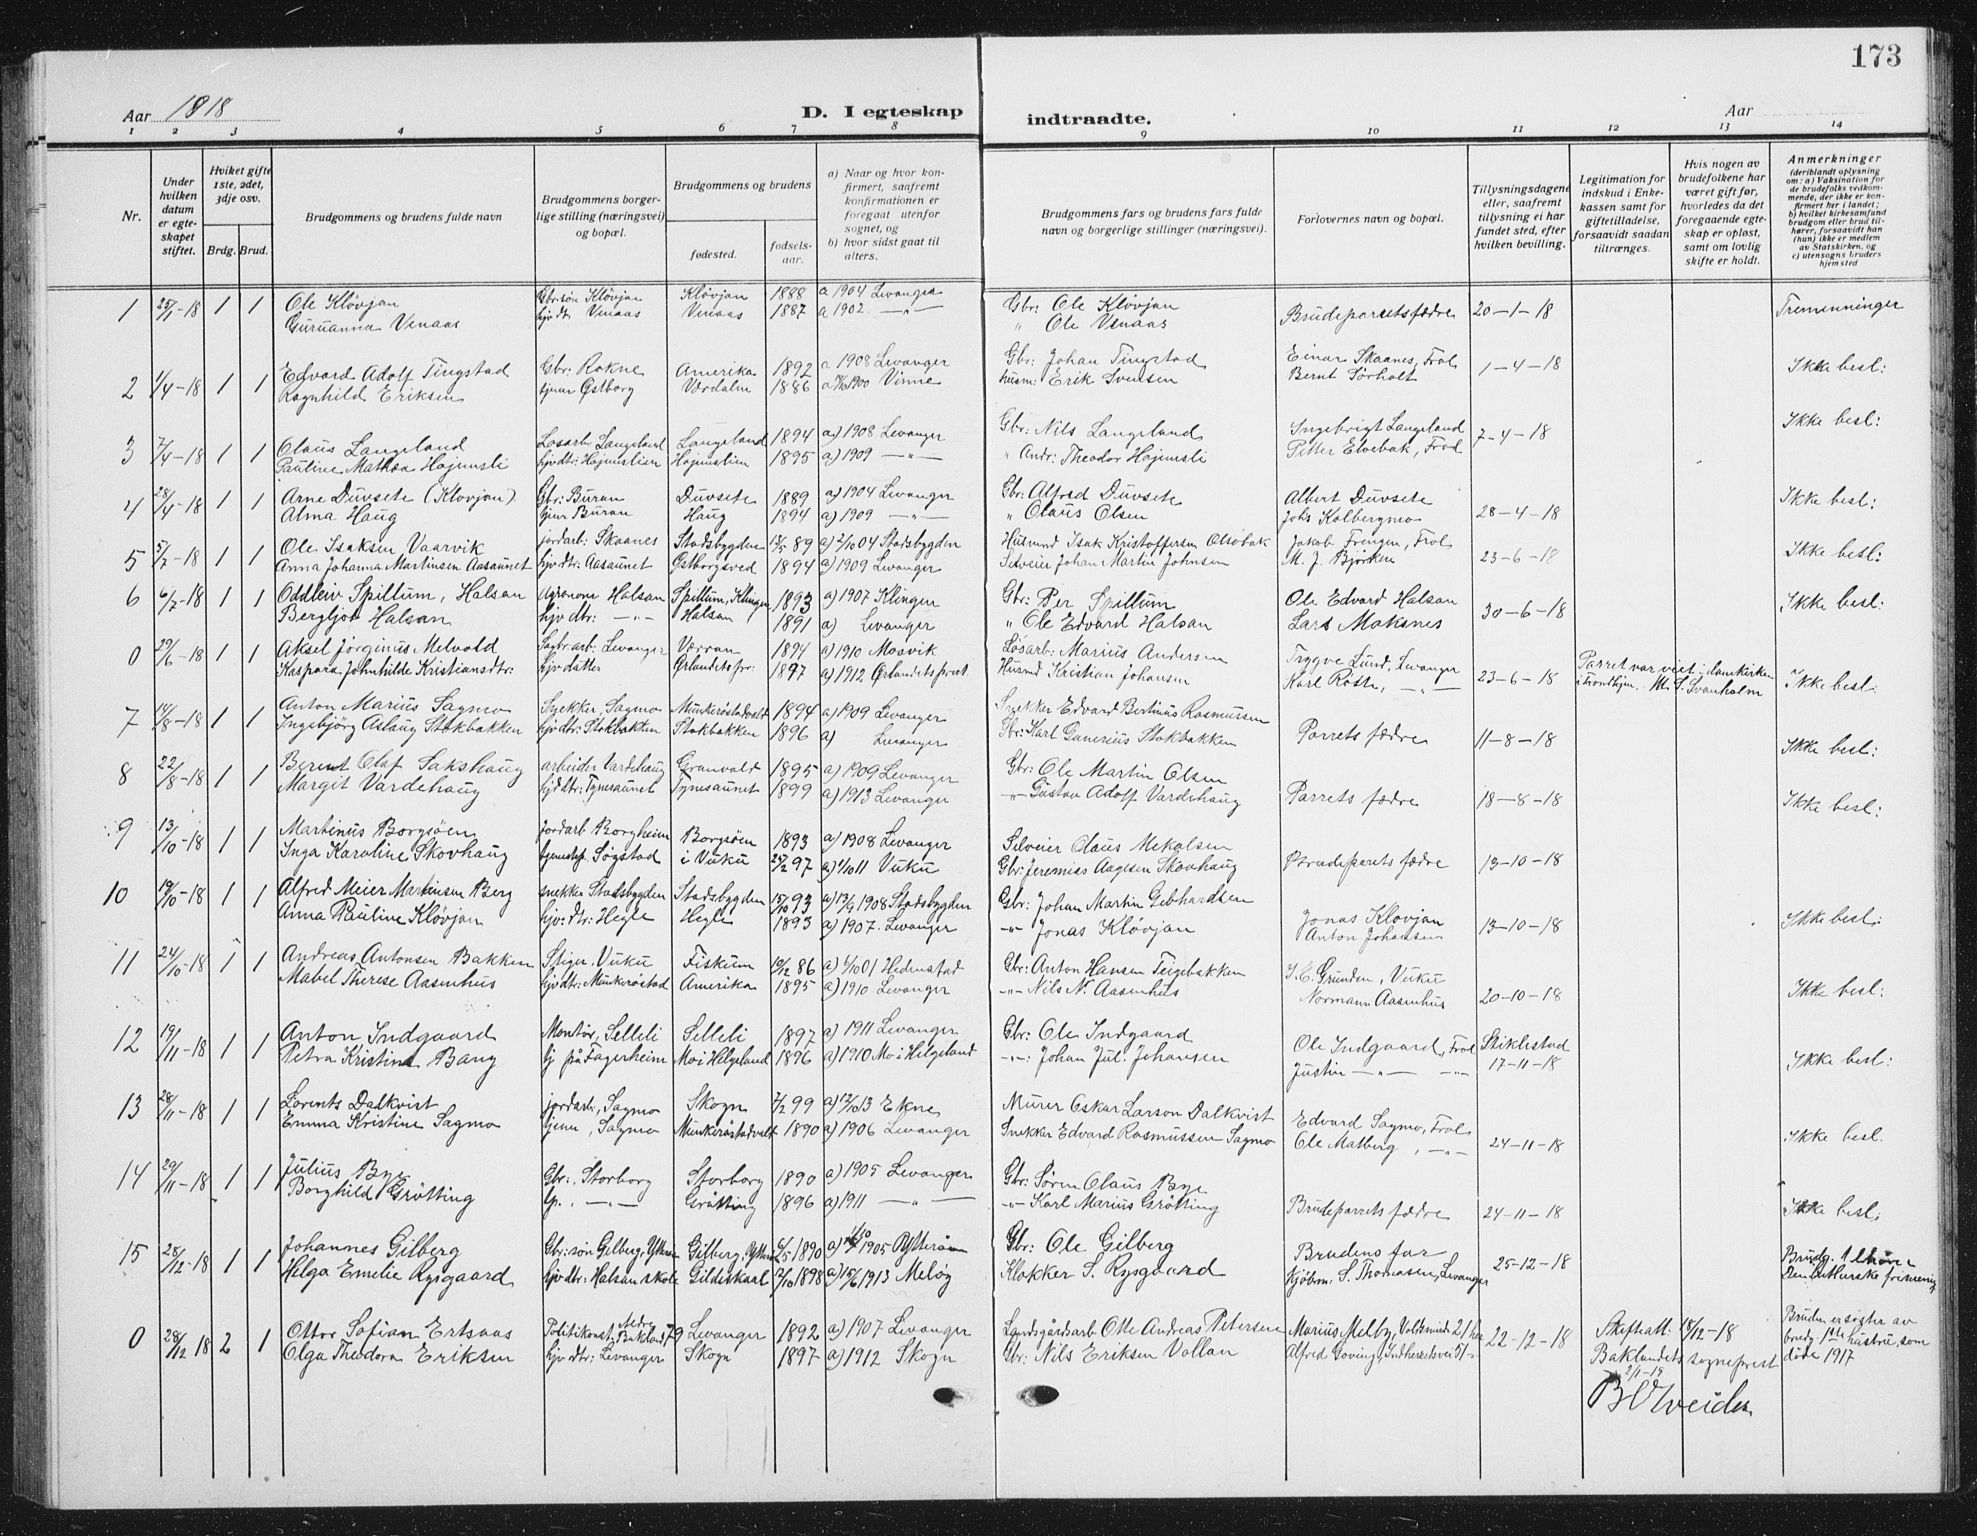 173
Aar 1918
D. Iegteskap
indtraadte.
Aar
1 2 3 4 5 6 7 8 9 10 11 12 13 14
Nr.
Under hvilken datum er egteskapet stiftet.
Hvilket gifte 1ste, 2det, 3dje osv.
Brdg. Brud.
Brudgommens og brudens fulde navn
Brudgommens borgerlige stilling (næringsvei) og bopæl.
Brudgommens og brudens
fødested.
fødselsaar.
a) Naar og hvor konfirmert, saafremt konfirmationen er foregaat utenfor sognet, og
b) hvor sidst gaat til alters.
Brudgommens fars og brudens fars fulde navn og borgerlige stillinger (næringsvei).
Forlovernes navn og bopæl.
Tillysningsdagene eller, saafremt tillysning ei har fundet sted, efter hvilken bevilling.
Legitimation for indskud i Enkekassen samt for giftetilladelse, forsaavidt saadan tiltrænges.
Hvis nogen av brudefolkene har været gift før, hvorledes da det foregaaende egteskap er opløst, samt om lovlig skifte er holdt.
Anmerkninger
(deriblandt oplysning om: a) Vaksination for de brudefolks vedkommende, der ikke er konfirmert her i landet;
b) hvilket kirkesamfund brudgom eller brud tilhører, forsaavidt han (hun) ikke er medlem av Statskirken, og
c) utensogns bruders hjemsted
1 25/1-18 1 1 Ole Kløvjan Gbr.søn Kløvjan Kløvjan 1888 a 1904 Levanger Gbr: Ole Kløvjan Brudeparretsfædre 20-1-18 Tremenninger
Guruanna Venaas hjv dtr Venaas Venaas 1887 a 1902 —"— " Ole Venaas
2 1/4-18 1 1 Edvard Adolf Tingstad Gbr: Rokne Amerika 1892 a 1908 Levanger Gbr: Johan Tingstad Einar Skaanes, Frol 1-4-18 Ikke besl:
Ragnhild Eriksen tjener Østborg Værdalen 1886 1900 Vinne husm: Erik Svensen Bernt Sørholt
3 7/4-18 1 1 Claus Langeland Løsarb. Langeland Langeland 1894 a) 1908 Levanger Gbr: Nils Langeland Ingebrigt Langeland 7-4-18 Ikke besl:
Pauline Mathea Hojemsli hjvdtr: Hojemslien Hojemslien 1895 a) 1909 —"— " Andr: Theodor Hojemsli Petter Elvebak, Frol
4 28/4-18 1 1 Arne Duvsete (Kløvjan) Gbr: Buran Duvsete 1889 a) 1904 Levanger Gbr: Alfred Duvsete Albert Duvsete 28-4-18 Ikke besl:
Alma Haug tjener Buran Haug 1894 a) 1909 —"— " Claus Olsen Johs Kolbergmo
5 5/7-18 1 1 Ole Isaksen Vaarvik jordarb: Skaanes Stadsbygden 89 a) 2/10 04 Stadsbygden Husmd Isak Kristoffersen Jakob Fringen, Frol 23-6-18 Ikke besl:
Anna Johanna Martinsen Aasaunet hjvdtr: Aasaunet Østborgsved 1894 a) 1909 Levanger Selveier Johan Martin Johnsen M. J. Bjørken
6 6/7-18 1 1 Oddleiv Spillum, Halsan Agronom Halsan Spillum, Klinger 1893 a) 1907 Klingen Gbr: Per Spillum Ole Edvard Halsan 30-6-18 Ikke besl:
Bergljot Halsan hjv dtr: —"— Halsan 1891 a) Levanger " Ole Edvard Halsan Lars Moksnes
0 29/6-18 1 1 Aksel Jørginus Melvold Sagbr.arb. Levanger Værran 1894 a) 1910 Mosvik Løsarb: Marius Andersen Trygve Lund, Levanger 23-6-18 Parret var viet i domkirken i Trondhjem. M. S. Svanholm Ikke besl.
Kaspara Johnhilde Kristiansdtr: hjv datter Ørlandets pr: 1897 a) 1912 Ørlandets prst. Husmd Kristian Johansen Karl Røtte, —"—
7 14/8-18 1 1 Anton Marius Sagmo Snekker, Sagmo Munkerøstadvalt 1894 a) 1909 Levanger Snekker Edvard Bertinus Rasmussen Parrets fædre 11-8-18 Ikke besl:
Ingebjørg Aslaug Stokbakken hjvdtr: Stokbakken Stokbakken 1896 a) Levanger Gbr: Karl Gunerius Stokbakken
8 22/8-18 1 1 Bernt Olaf Sakshaug arbeider Vardehaug Granvold 1895 a) 1909 Levanger Gbr: Ole Martin Olsen Parrets fædre 18-8-18 Ikke besl:
Margit Vardehaug hjvdtr: Tynesaunet Tynesaunet 1899 a) 1913 Levanger —"— Gustav Adolf Vardehaug
9 13/10-18 1 1 Martinus Borgsøen Jordarb Borgheim Borgsøen 1893 a) 1908 Levanger Selveier Claus Mekalsen Brudeparets fædre 13-10-18
Inga Karoline Skovhaug Søgstad i Vuku 97 a) 1/10 11 Vuku Gbr: Jeremias Aagesen Skovhaug
10 19/10-18 1 1 Alfred Meier Martinsen Berg snekker Stadsbygden Stadsbygden 15/10 93 a) 13/9 1908 Stadsbygden Gbr: Johan Martin Gebhardsen Jonas Kløvjan 13-10-18 Ikke besl:
Anna Pauline Kløvjan hjv: dtr: Hegle Hegle 1893 a) 1907. Levanger —"— Jonas Kløvjan Anton Johansen
11 24/10-18 1 1 Andreas Antonsen Bakken Stiger, Vuku Fiskum 12 86 a) 1/10 01 Hedenstad Gbr: Anton Hansen Teigebakken J. E. Grunden, Vuku 20-10-18 Ikke besl:
Mabel Therese Aasenhus hjvdtr: Munkerøstad Amerika 1895 a) 1910 Levanger —"— Nils N. Aasenhus Normann Aasenhus
12 19/11-18 1 1 Anton Indgaard Montør, Selleli Selleli 1897 a) 1911 Levanger Gbr: Ole Indgaard Ole Indgaard, Frol Stiklestad 17-11-18 Ikke besl:
Petra Kristine Bang tj på Fagerheim Mo i Helgeland 1896 a) 1910 Mo i Helgeland —"—: Johan Jul. Johansen Justin —"— —"—
13 28/11-18 1 1 Lorents Dalkvist jordarb., Sagmo Skogn 7/2 99 a) 12/10 13 Ekne Murer Oskar Larson Dalkvist Edvard Sagmo, Frol 24-11-18 Ikke besl.
Emma Kristine Sagmo tjener, Sagmo Munkerøstadvalt 1890 a) 1906 Levanger Snekker Edvard Rasmussen Sagmo Ole Malberg, —"—
14 29/11-18 1 1 Julius Bye Gbr., Storborg Storborg 1890 a) 1905 Levanger Gbr: Søren Claus Bye Brudeparrets fædre 24-11-18 Ikke besl.
Borghild Grøtting —"— Grøtting 1896 a) 1911 —"— —"— Karl Marius Grøtting
15 28/12-18 1 1 Johannes Gilberg Gbr: søn Gilberg, Ytterøen Gilberg, Ytterøen 6/5 1890 a) 1905 Ytterøen Gbr: Ole Gilberg Brudens far 25-12-18 Brudg. tilhører Den lutherske frimenig
Helga Emelie Rysgaard hjvdtr: Halsan skole Gildeskaal 7/10 1898 a) 15/6 1913 Meløy Klokker S. Rysgaard Kjøbm: S. Thomasen, Levanger
0 28/12 18 2 1 Ottor Sofian Ertsaas Politikonst. Nedre Bakland 79 Levanger 1892 a) 1907 Levanger Landsgårdsarb Otte Andreas Petersen Marius Melby, Voldsminde 21 22-12-18 Skifteatt: 18/12-18 Bruden er søster av brudg: 1ste hustru, som døde 1917
Olga Theodora Eriksen hjv dtr: Levanger Skogn 1897 a) 1912 Skogn Gbr: Nils Eriksen Vollan Alfred Goving, Indherredsvei 51 Baklandets sogneprest
2/1-19